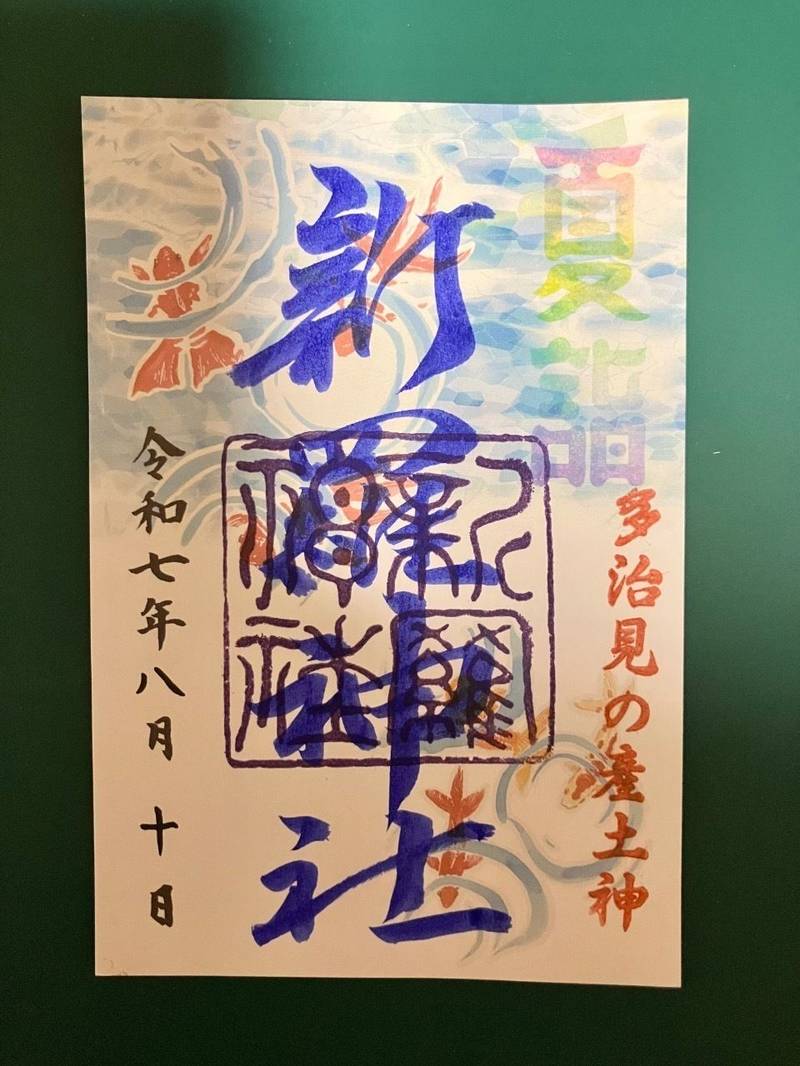 夏詣
多治見の産土神
新羅神社
新羅神社
令和七年八月 十日